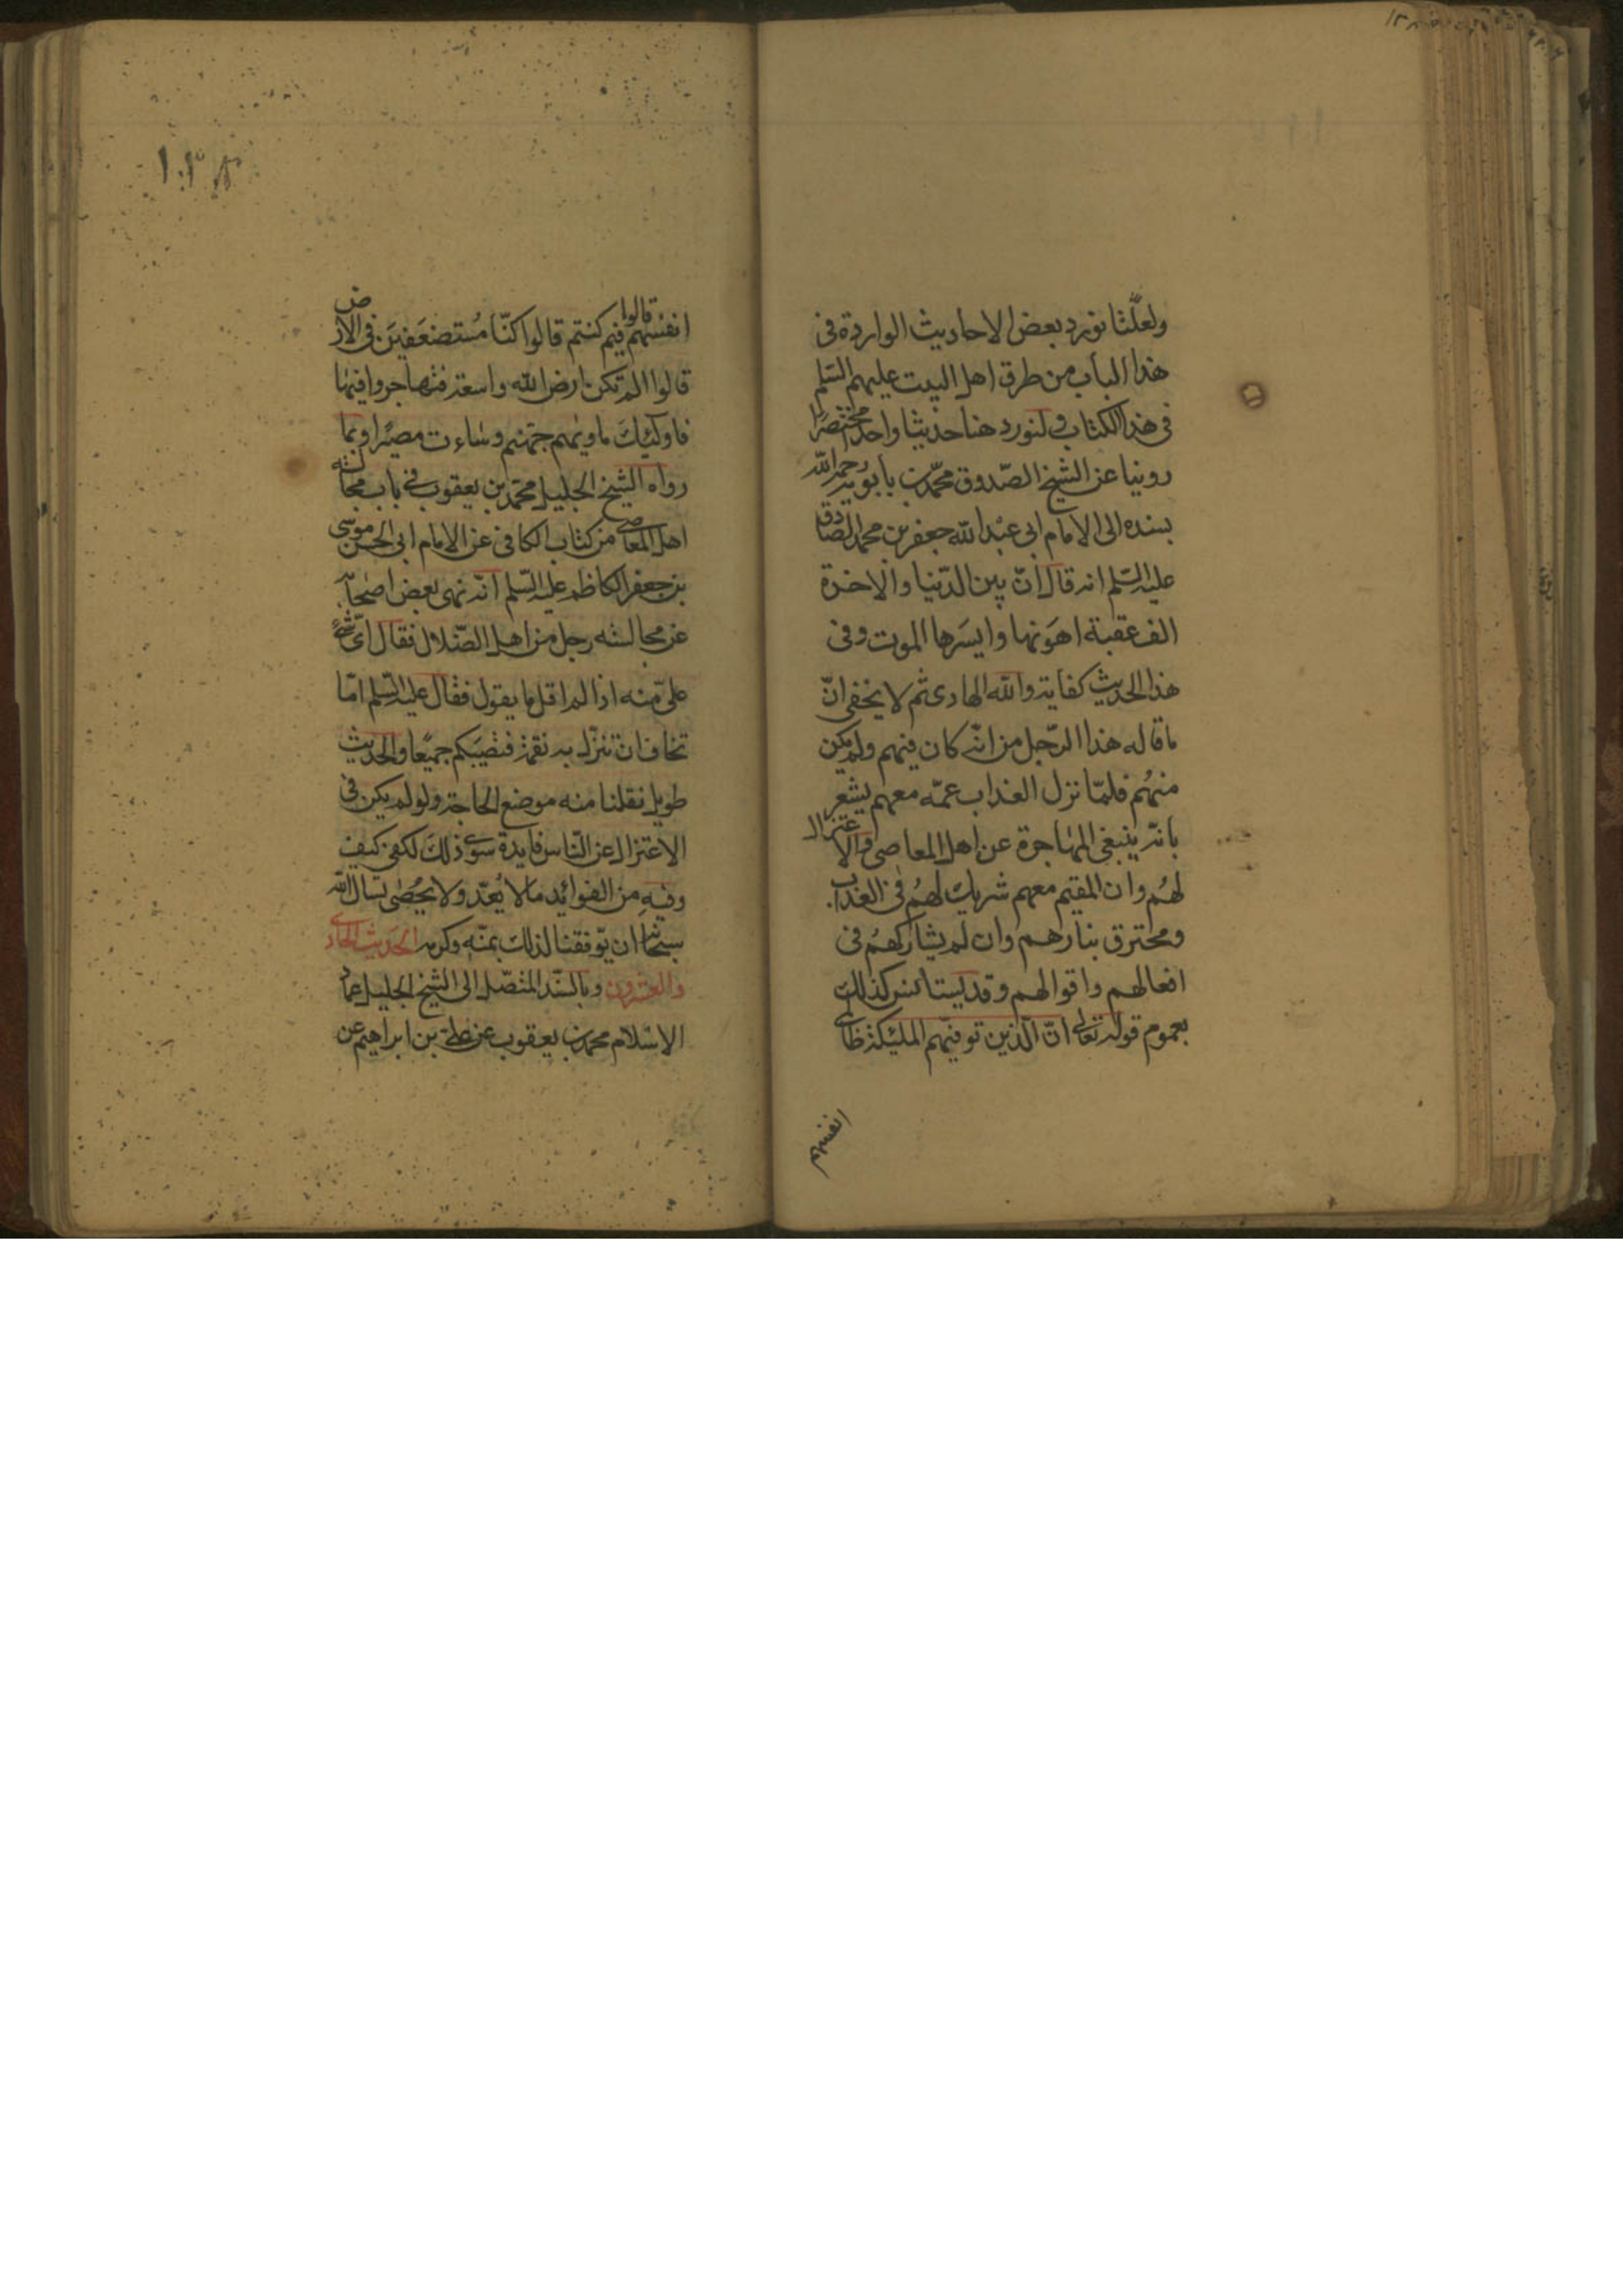 ولعلّنا نورد بعض الاحاديث الواردة فى
هذا الباب من طرق اهل البيت عليهم السّلم
فى هذا الكتاب ولنورد هنا حديثا واحدا مختصرًا
روينا عن الشيخ الصّدوق محمّد بن بابويه رحمه الله
بسنده الى الامام ابى عبد الله جعفر بن محمد الصّادق
عليه السّلم انه قال انّ بين الدّنيا والاخرة
الف عقبة اهونها وايسرها الموت وفى
هذا الحديث كفاية والله الهادى ثم لا يخفى انّ
ما قاله هذا الرّجل من انّه كان فيهم ولم يكن
منهُم فلمّا نزل العذاب عمّه معهم يشعر
بانّه ينبغى المهاجرة عن اهل المعاصى والاعتزال
لهُم وان المقيم معهم شريك لهُم فى العذاب
ومحترق بنارهم وان لم يشاركهُم فى
افعالهم واقوالهم وقد يستانس كذلك
بعموم قوله تعالى انّ الّذين توفيّهم الملئكة ظالمى
انفسهم
انفسهم قالوا فيم كنتم قالوا كنّا مُستضعَفينَ فى الارض
قالوا الم تكن ارض الله واسعة فتهاجروا فيها
فاولئِكَ ماويهم جهنم وساءت مصيرًا وبما
رواه الشيخ الجليل محمّد بن يعقوب فى باب مجالسة
اهل المعاصى من كتاب الكافى عن الامام ابى الحسن موسى
بن جعفر الكاظم عليه السّلم انّه نهى بعض اصحابه
عن مجالسته رجل من اهل الضّلال فقال اىّ شىء
علىّ منه اذا لم اقل ما يقول فقال عليه السّلم امّا
تخاف ان تنزّل به نقمة فتصيبكم جميعًا والحديث
طويل نقلنا منه موضع الحاجة ولو لم يكن فى
الاعتزال عن النّاس فايدة سوى ذلك لكفى كيف
وفيه من الفوائد ما لا يُعدّ ولا يُحصٰى نسال الله
سبحانه ان يوّفقنا لذلك بمنّه وكرمه الحديث الحادى
والعشرون وبالسّند المتّصل الى الشيخ الجليل عماد
الاسلام محمد بن يعقوب عن على بن ابراهيم عن